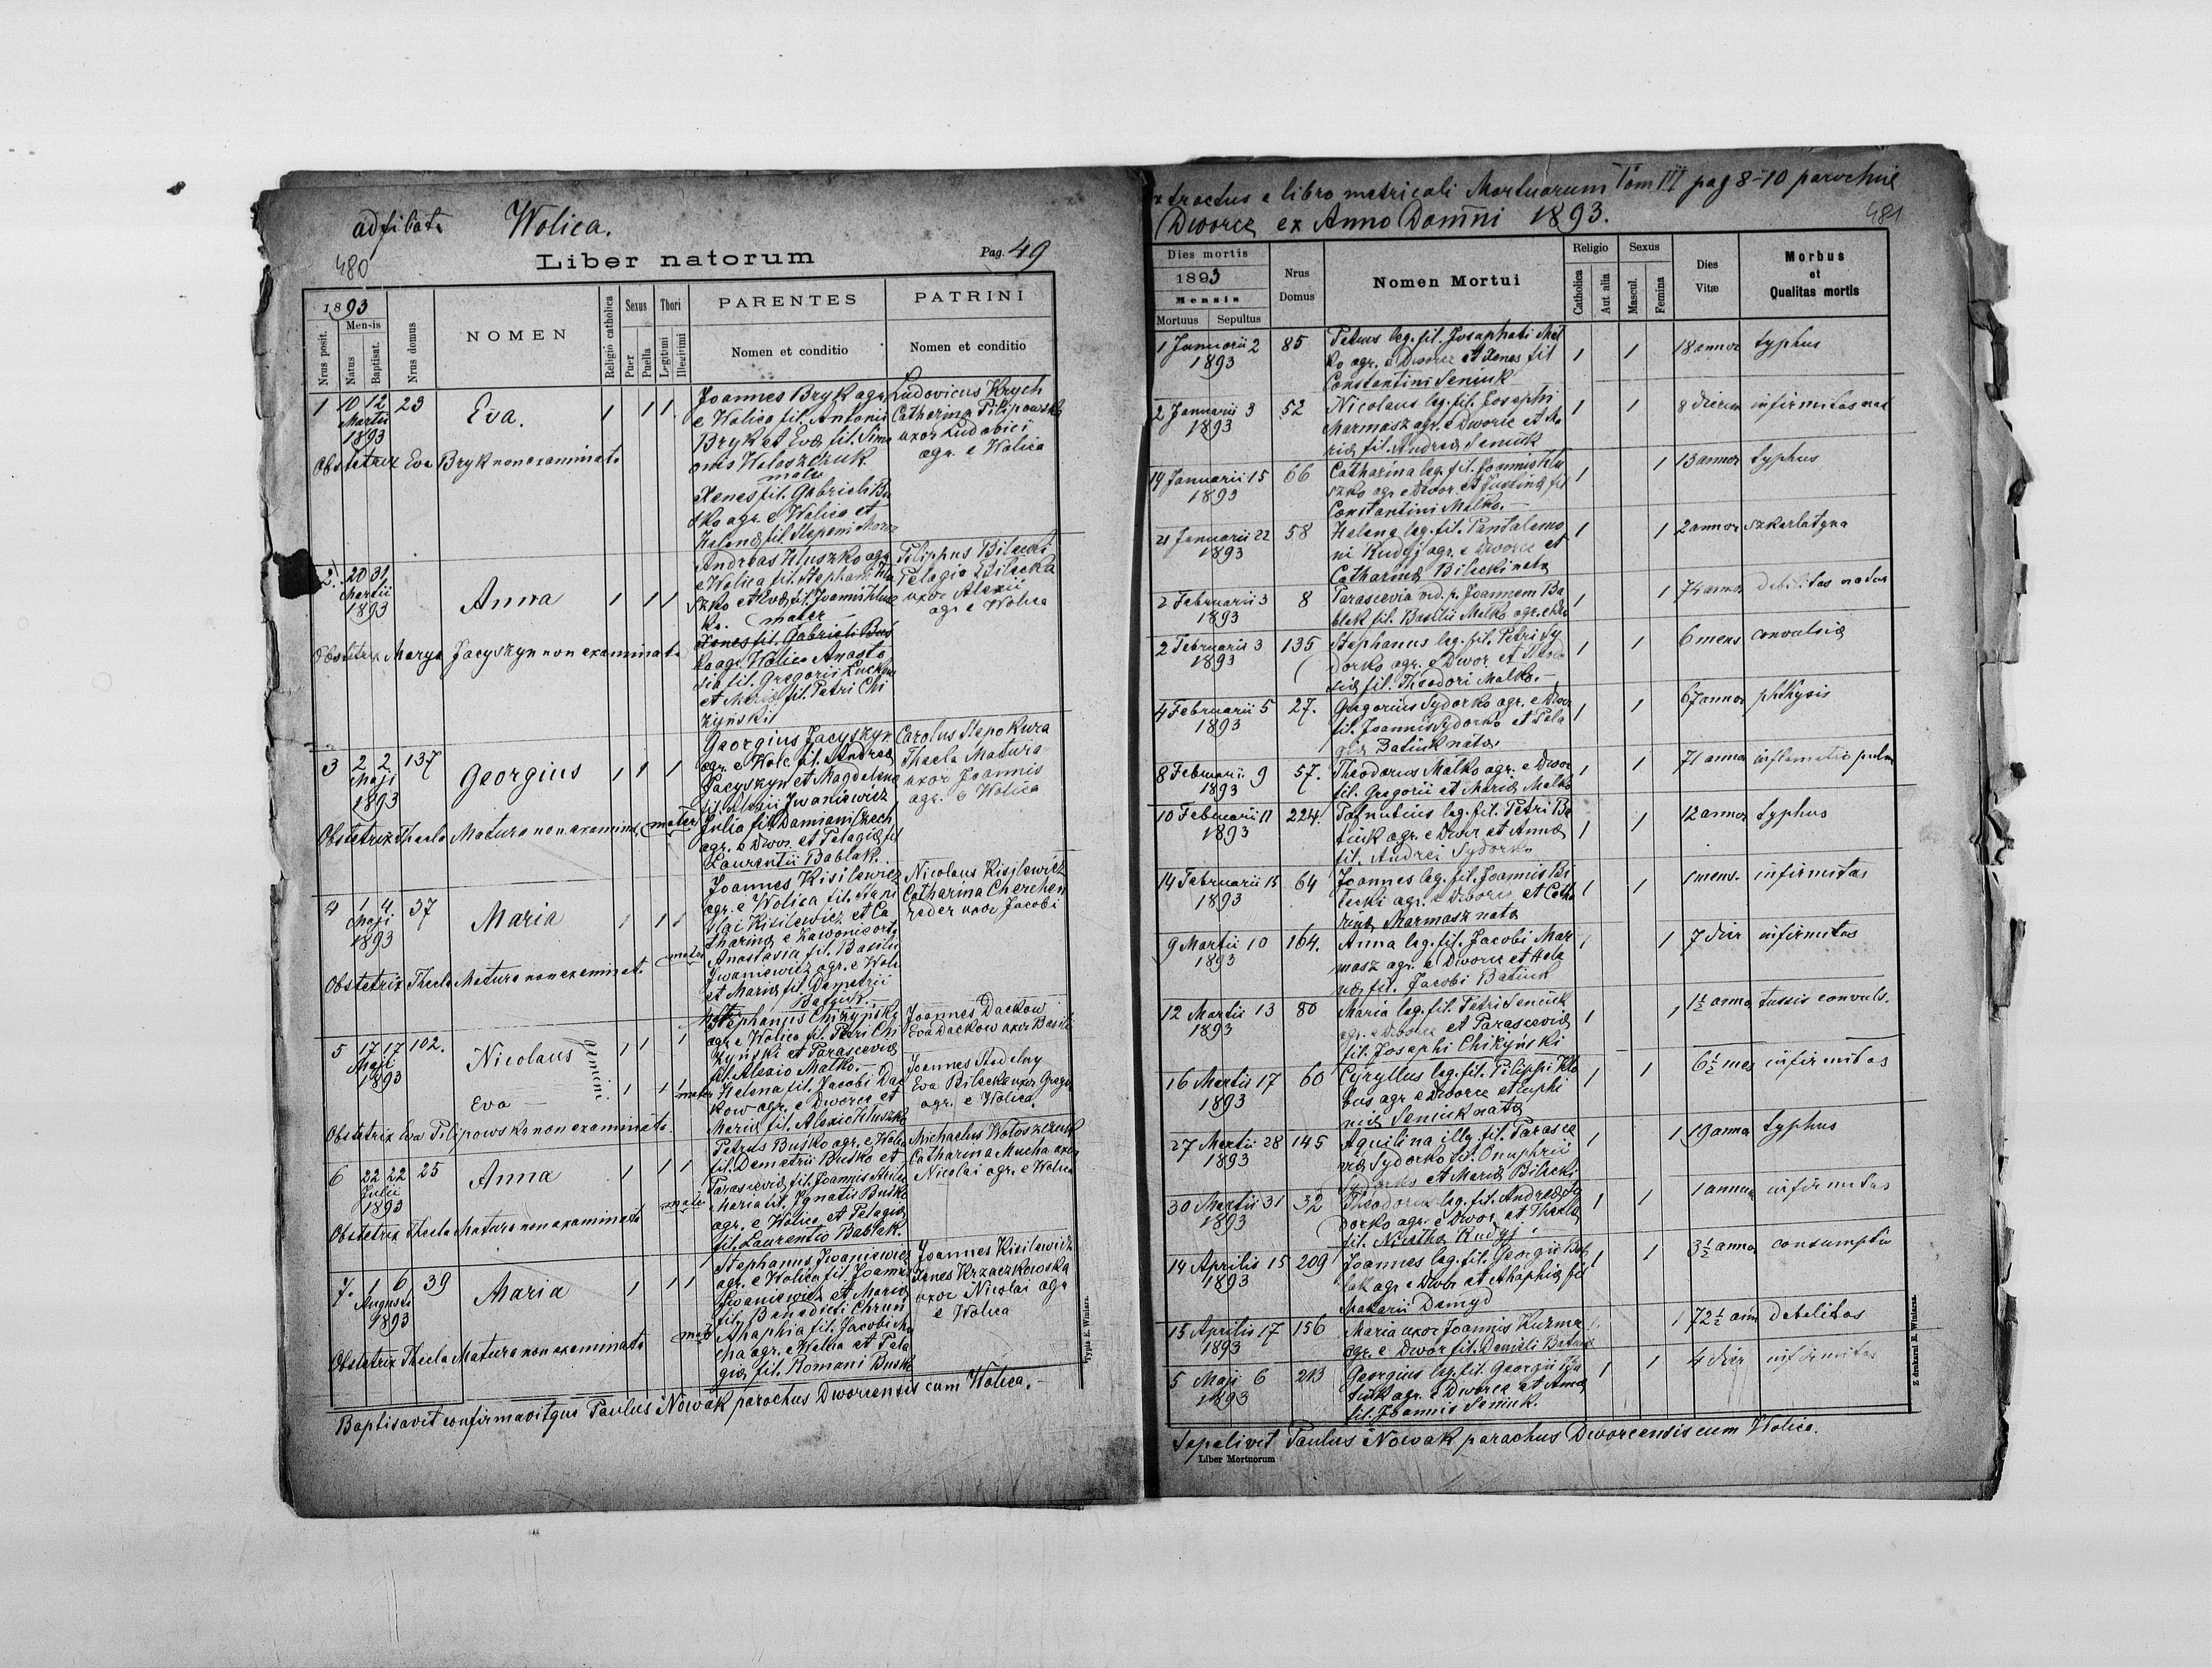 adfiliata Wolica.
480
Liber natorum
Pag. 49
1893
Nrus posit.
Mensis
Natus
Baptisat.
Nrus domus
NOMEN
Religio catholica
Sexus
Puer
Puella
Thori
Legitimi
Illegitimi
PARENTES
Nomen et conditio
PATRINI
Nomen et conditio
1 10 12 23 Eva. 1 1 1
Martii
1893
Joannes Bryk agr.
e Wolica fil. Antonii
Bryk et Evą fil. Sime
onis Wołoszczuk.
mater
Xenes fil. Gabrieli Bu
śko agr. e Wolica et
Heleną fil. Stepani Moroz
Ludovicus Krych
Catherina Filipowska
uxor Ludovici
agr. e Wolica
Obstetrix Eva Bryk non examinata
2. 20 31 Anna 1 1 1
Martii
1893
Andreas Hłuszko agr.
e Wolica fil. Stephani Hłu
szko et Evą fil. Joannis Hłusz
ko. mater
Xenes fil. Gabrieli Buś
ko agr. Wolica Anasta
sia fil. Gregorii
et Marią fil. Petri Chi
żyński
Filippus Bilecki
Pelagia Bilecka
uxor Alexii
agr. e Wolica
Obstetrix Marya Jacyszyn non examinata
3 2 2 137 Georgius 1 1 1
Maji
1893
Georgius Jacyszyn
agr. e Wolc. fil. Andreą
Jacyszyn et Magdaleną
fil. Alexii Iwaniewicz
mater Julia fil. Damiani
agr. e Dwor. et Pelagią fil
Laurentii Bablak.
Carolus Stepokura
Thecla Matura
uxor Joannis
agr. e Wolica
Obstetrix Thecla Matura non examina.
4 1 4 37 Maria 1 1 1
Maji
1893
Joannes Kisilewicz
agr. e Wolica fil. Nani
Kisilewicz et Ca
tharina e
mater Anastasia fil. Basilii
Iwaniewicz agr. e Wolc
et Marią fil. Demetrii
Batiuk.
Nicolaus Kisilewicz
Catharina Cherchen
reder uxor Jacobi
Obstetrix Thecla Matura non examinat.
5 17 17 102. Nicolaus gemini 1 1 1
Maji
1893
Eva — 1 1 1
Stephanus Chiżyński
agr. e Wolica fil. Petri Chi
żyński et Parascevią
fil. Alexio Małko. —
mater Helena fil. Jacobi Dac
kow agr. e Dworce et
Marią fil. Alexio Hłuszko
Joannes Dackow
Eva Dackow uxor Basili
Joannes
Eva Bilecka uxor Grego
agr. e Wolica.
Obstetrix Eva Filipowska non examinata.
6 22 22 25 Anna 1 1 1
Julii
1893
Petrus Buśko agr. e Wolic
fil. Demetrii Buśko et
Parascevią fil. Joannis
mater Maria fil. Ignatii Buśko
agr. e Wolica et Pelagią
fil. Laurentio Bablak.
Michaelus Wołoszczuk
Catharina Mucha uxor
Nicolai agr. e Wolica
Obstetrix Thecla Matura non examinata
7. 1 6 39 Maria 1 1 1
Augusti
1893
Stephanus Iwaniewicz
agr. e Wolica fil. Joannis
Iwaniewicz et Marią
fil. Benedicti Chrun
mater Ahaphia fil. Jacobi Mu
cha agr. e Wolica et Pela
gią fil. Romani Buśko
Joannes Kisilewicz
Xenes Krzaczkowska
uxor Nicolai agr
e Wolica
Obstetrix Thecla Matura non examinata
Baptisavit confirmavitque Paulus Nowak parochus Dworcensis cum Wolica. —
Typis E. Winiarz.
xtractus e libro matricali Mortuorum Tom III pag 8-10 parochiæ
Dworce ex Anno Domini 1893.
481
Dies mortis
1893
Mensis
Mortuus
Sepultus
Nrus
Domus
Nomen Mortui
Religio
Catholica
Aut alia
Sexus
Mascul.
Femina
Dies
Vitæ
Morbus
et
Qualitas mortis
1 Januarii 2 85 Petrus leg. fil. Josaphati Mał 1 1 18 annor typhus
1893 ko agr. e Dworce et Xenes fil
Constantini Seniuk
2 Januarii 3 52 Nicolaus leg. fil. Josephi 1 1 8 dierum infirmitas nat
1893 Marmasz agr. e Dworce et Ma
rią fil. Andreą Seniuk
14 Januarii 15 66 Catharina leg. fil. Joannis Hłu 1 1 13 annor typhus
1893 szko agr e Dwor. et Justiną fil
Constantini Małko.
21 Januarii 22 58 Helena leg. fil. Pantalemo 1 1 2 annor szkarlatyna
1893 ni Rudyj agr. e Dworce et
Catharina Bilecki nata
2 Februarii 3 8 Parascevia vid. p. Joannem Ba 1 1 74 annor debilitas natur
1893 blak fil. Basilii Małko agr. e
2 Februarii 3 135 Stephanus leg. fil. Petri Sy 1 1 6 mens convulsią
1893 dorko agr. e Dwor. et
fil. Theodori Malko. —
4 Februarii 5 27. Gregorius Sydorko agr. e Dwor 1 1 67 annor phthysis
1893 fil. Joannis Sydorko et Pela
gią Batiuk natą
8 Februarii 9 57. Theodorus Małko agr. e Dwor 1 1 71 annor inflamatio pulm
1893 fil. Gregorii et Marią Małko
10 Februarii 11 224. Pafnutius leg. fil. Petri Ba 1 1 12 annor typhus
1893 tiuk agr. e Dwor et Anną
fil. Andrei Sydorko
14 Februarii 15 64 Joannes leg. fil. Joannis Bi 1 1 1 mens. infirmitas
1893 lecki agr. e Dworce et Catha
riną Marmasz natą
9 Martii 10 164. Anna leg. fil. Jacobi Mar 1 1 7 dier infirmitas
1893 masz agr. e Dworce et Hele
ną fil. Jacobi Batiuk
12 Martii 13 80 Maria leg. fil. Petri Seniuk 1 1 1½ anno tussis convuls.
1893 agr. e Dworce et Parascevią
fil. Josephi Chiżyński
16 Martii 17 60 Cyryllus leg. fil. Filippi Kło 1 1 6½ mes infirmitas
1893 bus agr e Dworce et Euphi
mią Seniuk natą
27 Martii 28 145 Aquilina illg. fil. Parasce 1 1 19 anno typhus
1893 vią Sydorko fil. Onuphrii
Sydorko et Marią Bilecki
30 Martii 31 32 Theodorus leg. fil. Andreą Sy 1 1 1 annum infirmitas
1893 dorko agr. e Dwor et Theclą
fil. Nikitą Rudyj.
14 Aprilis 15 209 Joannes leg. fil. Georgii Bab 1 1 3½ annor consumptio
1893 lak agr e Dwor et Ahaphią fil
Makarii Demyd
15 Aprilis 17 156 Maria uxor Joannis Kuzma 1 1 72½ ann debilitas
1893 agr. e Dwor fil. Danieli Batiuk
5 Maji 6 213 Georgius leg. fil. Georgii Ba 1 1 4 dier infirmitas
1893 tiuk agr. e Dworce et Anną
fil. Joannis Seniuk.
Sepelivit Paulus Nowak parochus Dworcensis cum Wolica.
Liber Mortuorum
Z drukarni E. Winiarza.